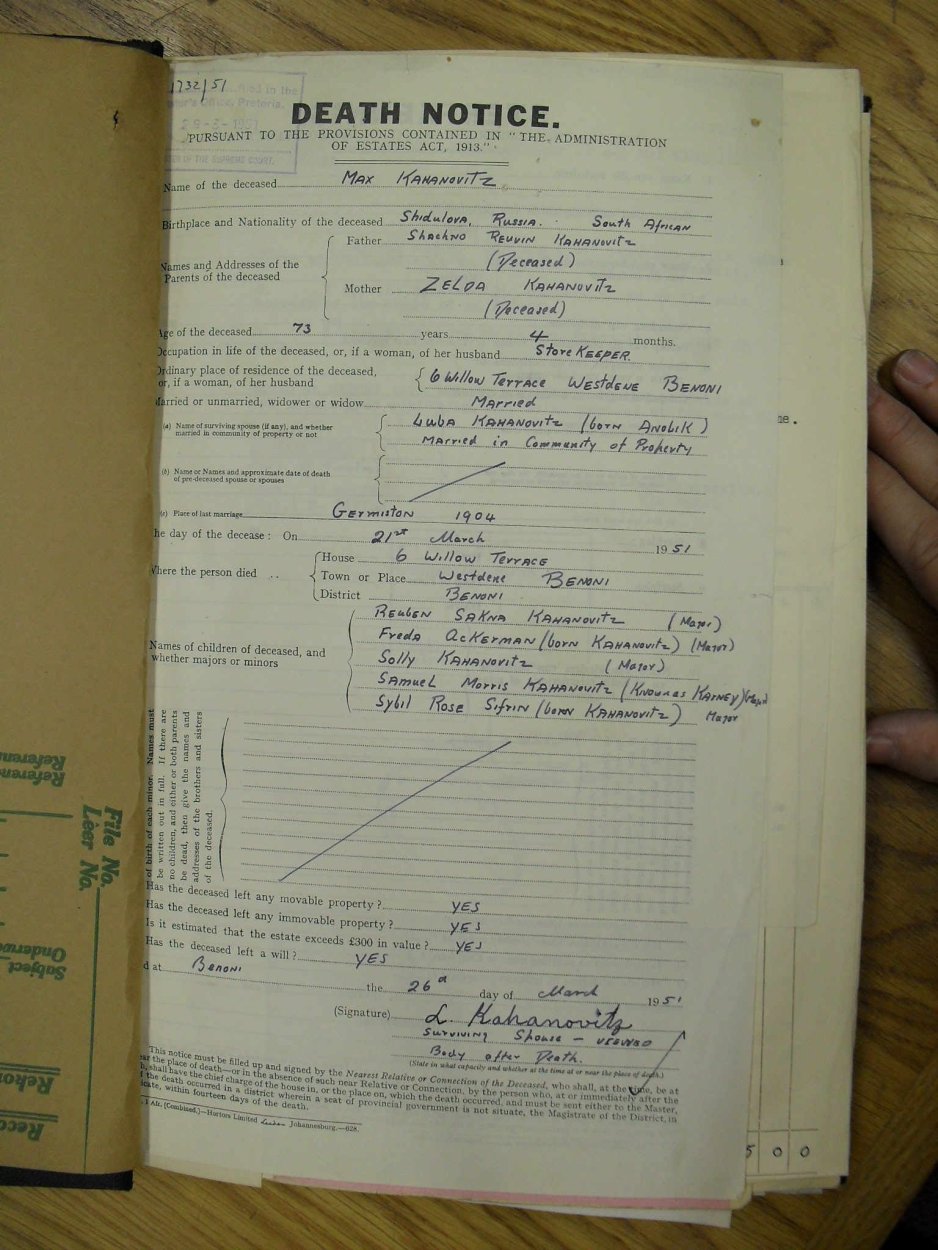 1732/51
filed in the
Office, Pretoria.
29-3-1951
OF THE SUPREME COURT.
DEATH NOTICE.
PURSUANT TO THE PROVISIONS CONTAINED IN "THE ADMINISTRATION
OF ESTATES ACT, 1913."
Name of the deceased MAX KAHANOVITZ
Birthplace and Nationality of the deceased Shidulova, Russia. South African
Names and Addresses of the Parents of the deceased
Father Shachno Reuvin KAHANOVITZ
(Deceased)
Mother ZELDA KAHANOVITZ
(Deceased)
Age of the deceased 73 years 4 months.
Occupation in life of the deceased, or, if a woman, of her husband StoreKEEPER.
Ordinary place of residence of the deceased,
or, if a woman, of her husband 6 Willow Terrace Westdene BENONI
Married or unmarried, widower or widow Married
(a) Name of surviving spouse (if any), and whether
married in community of property or not
Luba KAHANOVITZ (born ANOLIK)
Married in Community of Property
(b) Name or Names and approximate date of death
of pre-deceased spouse or spouses
(c) Place of last marriage Germiston 1904
The day of the decease: On 21st March 1951
Where the person died ..
House 6 Willow Terrace
Town or Place Westdene BENONI
District BENONI
Names of children of deceased, and
whether majors or minors
Reuben SAKNA KAHANOVITZ (Major)
Freda AcKERMAN (born KAHANOVITZ) (Major)
Solly KAHANOVITZ (Major)
SAMUEL Morris KAHANOVITZ (Known as KARNEY) (Major)
Sybil Rose Sifrin (born KAHANOVITZ) Major
of birth of each minor. Names must
be written out in full. If there are
no children, and either or both parents
be dead, then give the names and
addresses of the brothers and sisters
of the deceased.
Has the deceased left any movable property? YES
Has the deceased left any immovable property? YES
Is it estimated that the estate exceeds £300 in value? YES
Has the deceased left a will? YES
d at Benoni the 26th day of March 1951
(Signature) L. Kahanovitz
Surviving Spouse – viewed
Body after Death.
(State in what capacity and whether at the time at or near the place of death.)
This notice must be filled up and signed by the Nearest Relative or Connection of the Deceased, who shall, at the time, be at
or near the place of death—or in the absence of such near Relative or Connection, by the person who, at or immediately after the
shall have the chief charge of the house in, or the place on, which the death occurred, and must be sent either to the Master,
the death occurred in a district wherein a seat of provincial government is not situate, the Magistrate of the District, in
within fourteen days of the death.
Afr. (Combined.)—Hortors Limited Johannesburg.—628.
ne.
5 0 0
File No.
Leer No.
Subject